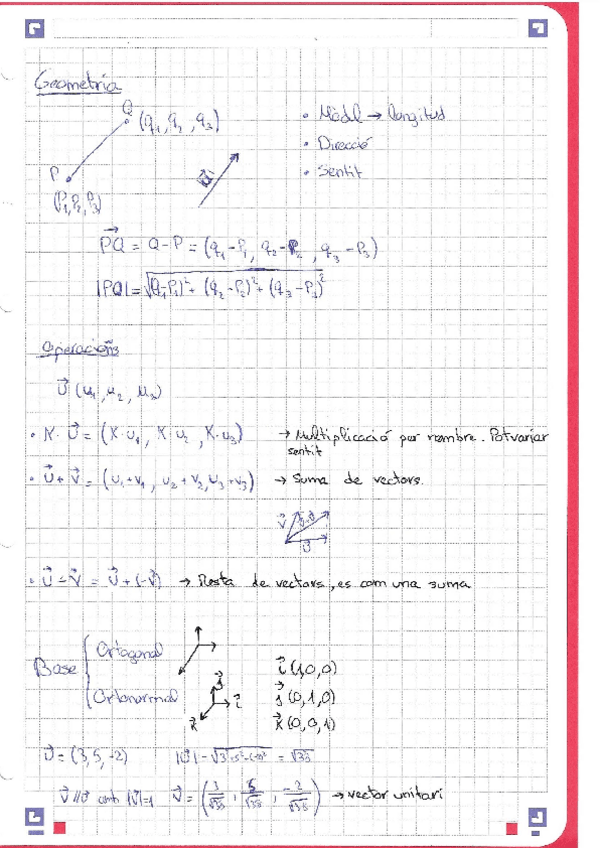 Geometria
Q
(q₁, q₂, q₃)
• Mòdul → longitud
• Direcció
• Sentit
P
(P₁, P₂, P₃)
PQ⃗ = Q-P = (q₁-P₁, q₂-P₂, q₃-P₃)
|PQ| = √(q₁-P₁)² + (q₂-P₂)² + (q₃-P₃)²
Operacions
U⃗ (u₁, u₂, u₃)
• K · U⃗ = (K·u₁, K·u₂, K·u₃) → Multiplicació per nombre. Pot variar
sentit
• U⃗ + V⃗ = (u₁+v₁, u₂+v₂, u₃+v₃) → Suma de vectors.
V⃗
U⃗
• U⃗ - V⃗ = U⃗ + (-V⃗) → Resta de vectors, es com una suma
Base { Ortogonal
Ortonormal
j⃗
i⃗
k⃗
i⃗ (1,0,0)
j⃗ (0,1,0)
k⃗ (0,0,1)
U⃗ = (3,5,-2) |U⃗| = √3²+5²+(-2)² = √38
V⃗ // U⃗ amb |V⃗|=1 V⃗ = (3/√38, 5/√38, -2/√38) → vector unitari